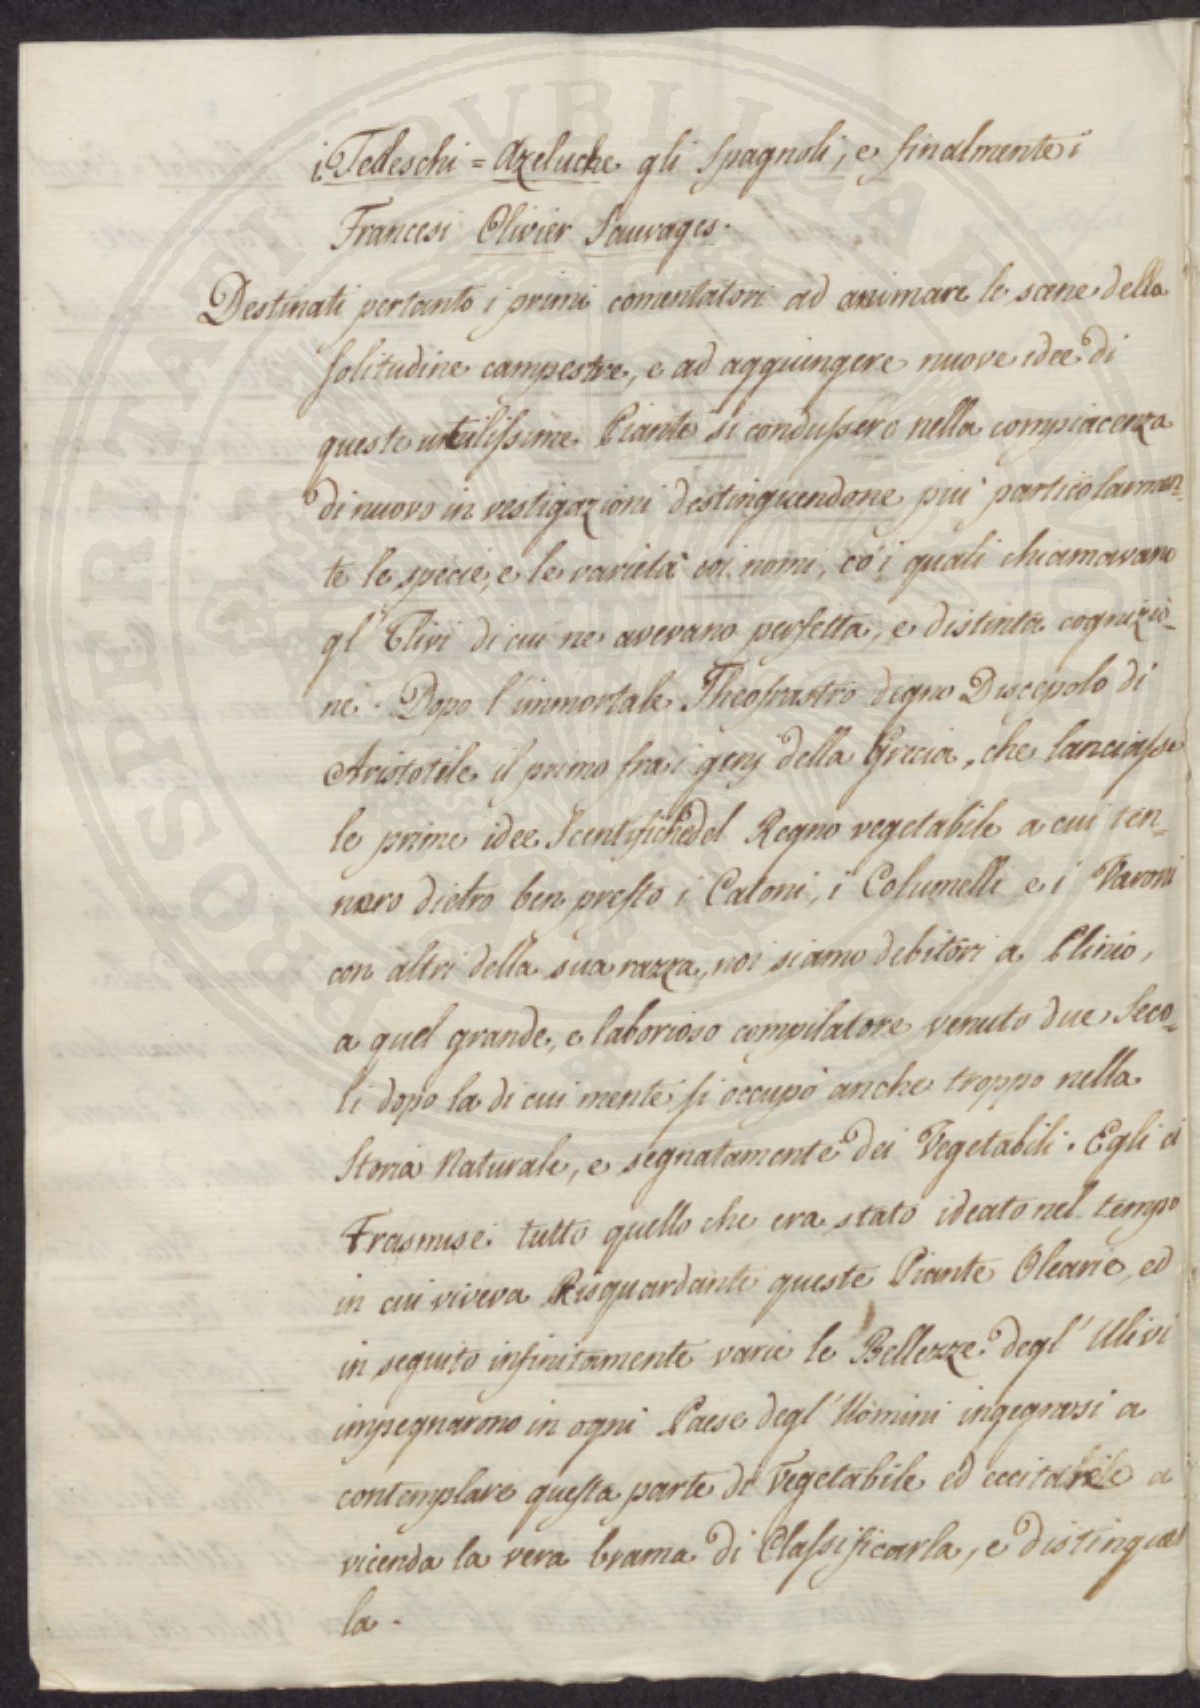 i Tedeschi = Azeluche gli Spagnoli, e finalmente i
Francesi Olivier Sauvages.
Destinati pertanto i primi comentatori ad animare le scene della
solitudine campestre, e ad aggiungere nuove idee di
queste utilissime Piante si condussero nella compiacenza
di nuovo investigazioni destinguendone piu particolarmen-
te le specie, e le varietà coi nomi, co' i quali chiamavano
gl' Ulivi di cui ne avevano perfetta, e distinta cognizio-
ne. Dopo l'immortale Theofrastro degno Discepolo di
Aristotile il primo fra i genj della Grecia, che lanciasse
le prime idee Scentifiche del Regno vegetabile a cui ten-
nero dietro ben presto i Catoni, i Columelli e i Varoni
con altri della sua razza, noi siamo debitori a Plinio,
a quel grande, e laborioso compilatore venuto due Seco-
li dopo la di cui mente si occupò anche troppo nella
Storia Naturale, e segnatamente dei Vegetabili. Egli ci
Trasmise tutto quello che era stato ideato nel tempo
in cui viveva Risguardanti queste Piante Olearie, ed
in seguito infinitamente varie le Bellezze degl' Ulivi
impegnarono in ogni Paese degl' Uomini ingegnarsi a
contemplare questa parte di Vegetabile ed eccitabile a
vicenda la vera brama di Classificarla, e distinguer
la.
PROSPERITATI PUBLICAE